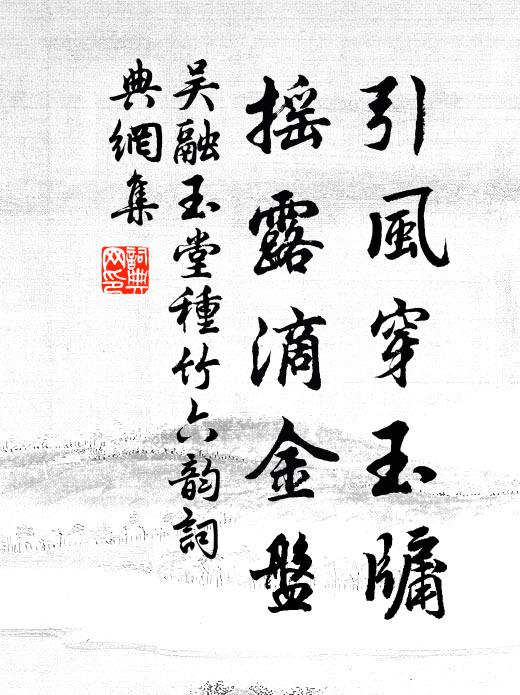 引風穿玉牖
搖露滴金盤
吳融玉堂種竹六韵詞
典網集
詞典
网印